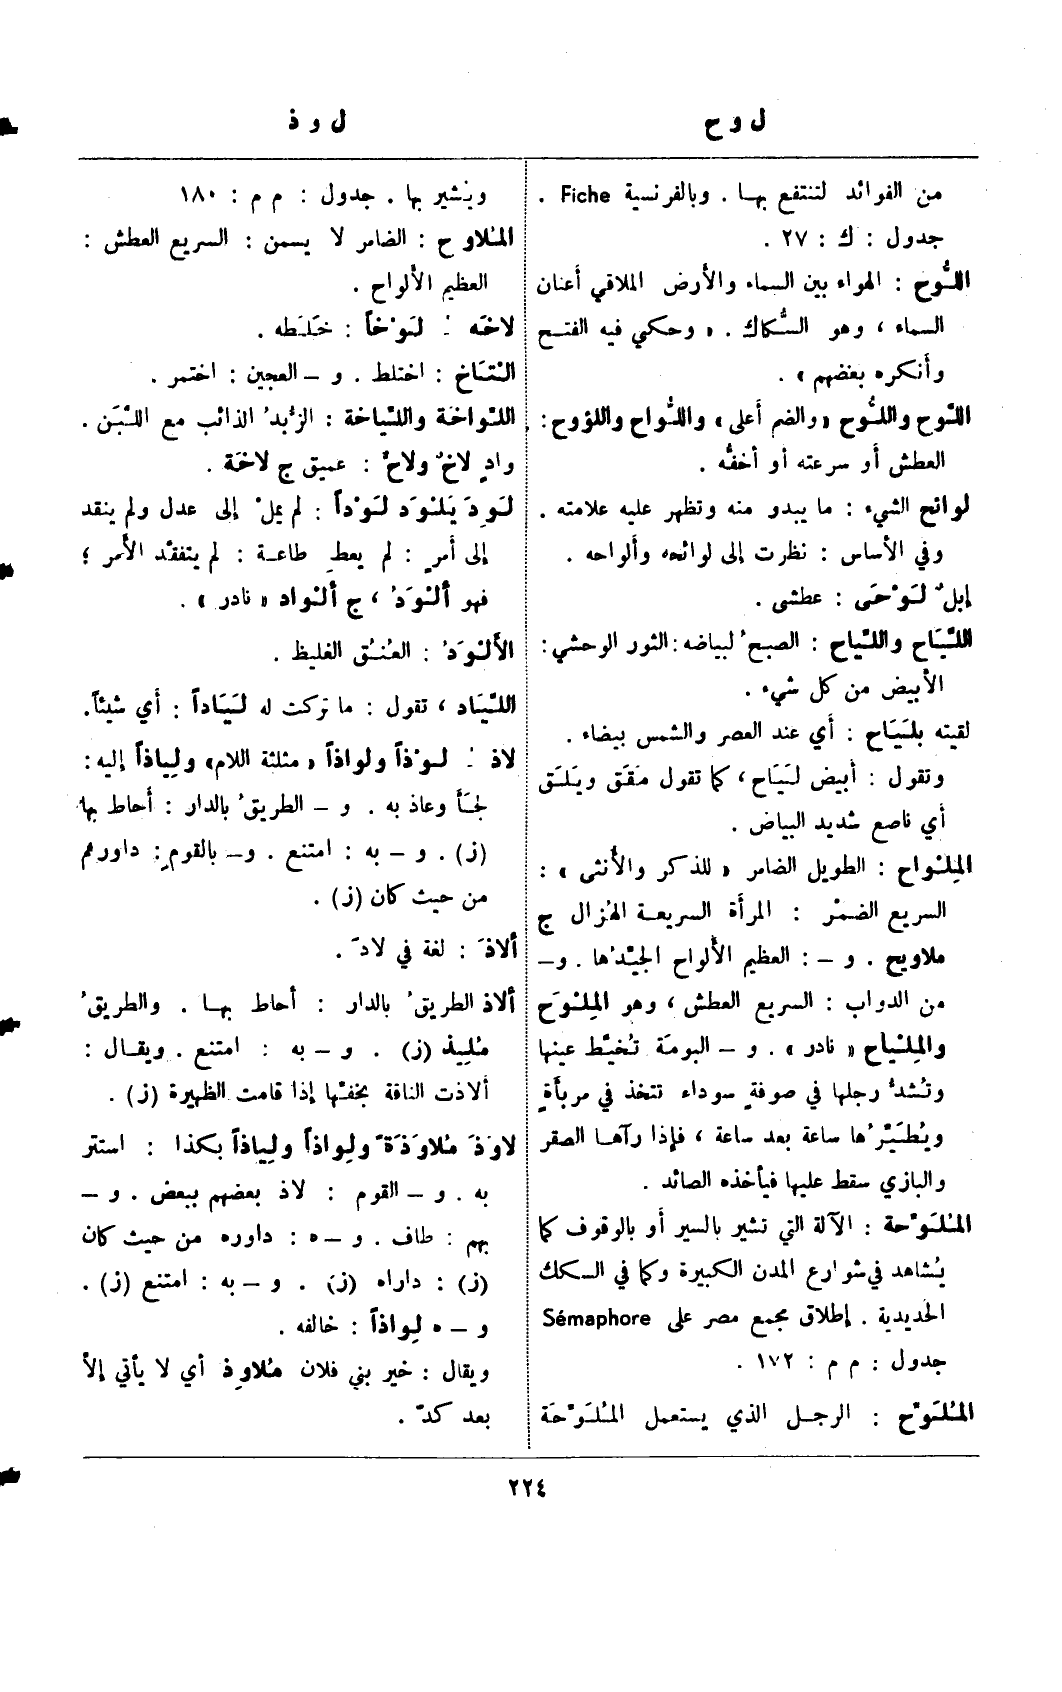 ل و ح
ل و ذ
من الفوائد لتنتفع بهـا . وبالفرنسية Fiche .
جدول : ك : ٢٧ .
اللُّوح : الهواء بين السماء والأرض الملاقي أعنان
السماء ، وهو السُّكاك . « وحكي فيه الفتـح
وأنكره بعضهم » .
اللَّوح واللُّوح « والضم أعلى » واللُّواح واللؤوح :
العطش أو سرعته أو أخفُّه .
لوائح الشيء : ما يبدو منه وتظهر عليه علامته .
وفي الأساس : نظرت إلى لوائحه وألواحه .
إبلٌ لَوْحَى : عطشى .
اللَّيَاح واللِّياح : الصبحُ لبياضه : الثور الوحشي :
الأبيض من كل شيء .
لقيته بلَيَاح : أي عند العصر والشمس بيضاء .
وتقول : أبيض لَيَاح ، كما تقول مَقَق ويَلَق
أي ناصع شديد البياض .
المِلْواح : الطويل الضامر « للذكر والأنثى » :
السريع الضمْر : المرأة السريعـة الهُزال ج
ملاويح . و – : العظيم الألواح الجيِّدُها . و–
من الدواب : السريع العطش ، وهو المِلْوَح
والمِلْياح « نادر » . و – البومَة تُخيَّط عينها
وتُشدُّ رجلها في صوفةٍ سوداء تتخذ في مربأةٍ
ويُطيَّرُها ساعة بعد ساعة ، فإذا رآهـا الصقر
والبازي سقط عليها فيأخذه الصائد .
المُلَوِّحة : الآلة التي تشير بالسير أو بالوقوف كما
يُشاهد في شوارع المدن الكبيرة وكما في السكك
الحديدية . إطلاق مجمع مصر على Sémaphore
جدول : م م : ١٧٢ .
المُلَوِّح : الرجـل الذي يستعمل المُلَوِّحَة
ويُشير بها . جدول : م م : ١٨٠
المُلاوح : الضامر لا يسمن : السريع العطش :
العظيم الألواح .
لاخَه ُ لَوْخاً : خَلَطه .
الْتَاخ : اختلط . و – العجين : اختمر .
اللواخَة واللِّياخة : الزُّبدُ الذائب مع اللَّبَن .
وادٍ لاخٌ ولاخٌ : عميق ج لاخَة .
لَوِدَ يَلْوَد لَوْداً : لم يملْ إلى عدل ولم ينقد
إلى أمرٍ : لم يعطِ طاعـة : لم يتفقَّد الأمر ؛
فهو ألْوَدُ ، ج ألْواد « نادر » .
الأَلْوَدُ : العُنُق الغليظ .
اللَّيَاد ، تقول : ما تركت له لَيَاداً : أي شيئاً .
لاذ ُ لَوْذاً ولواذاً « مثلثة اللام » ولِياذاً إليه :
لجَأ وعاذ به . و – الطريقُ بالدار : أحاط بها
(ز) . و – به : امتنع . و– بالقومِ : داورهم
من حيث كان (ز) .
ألاذَ : لغة في لاذَ .
ألاذ الطريقُ بالدار : أحاط بهـا . والطريقُ
مُلِيذ (ز) . و – به : امتنع . ويقـال :
ألاذت الناقة بخفِّها إذا قامت الظهيرة (ز) .
لاوَذَ مُلاوَذَةً ولِواذاً ولِياذاً بكذا : استتر
به . و – القوم : لاذ بعضهم ببعض . و –
بهم : طاف . و – ه : داوره من حيث كان
(ز) : داراه (ز) . و – به : امتنع (ز) .
و – ه لِواذاً : خالفه .
ويقال : خير بني فلان مُلاوِذ أي لا يأتي إلاَّ
بعد كدّ .
٢٢٤